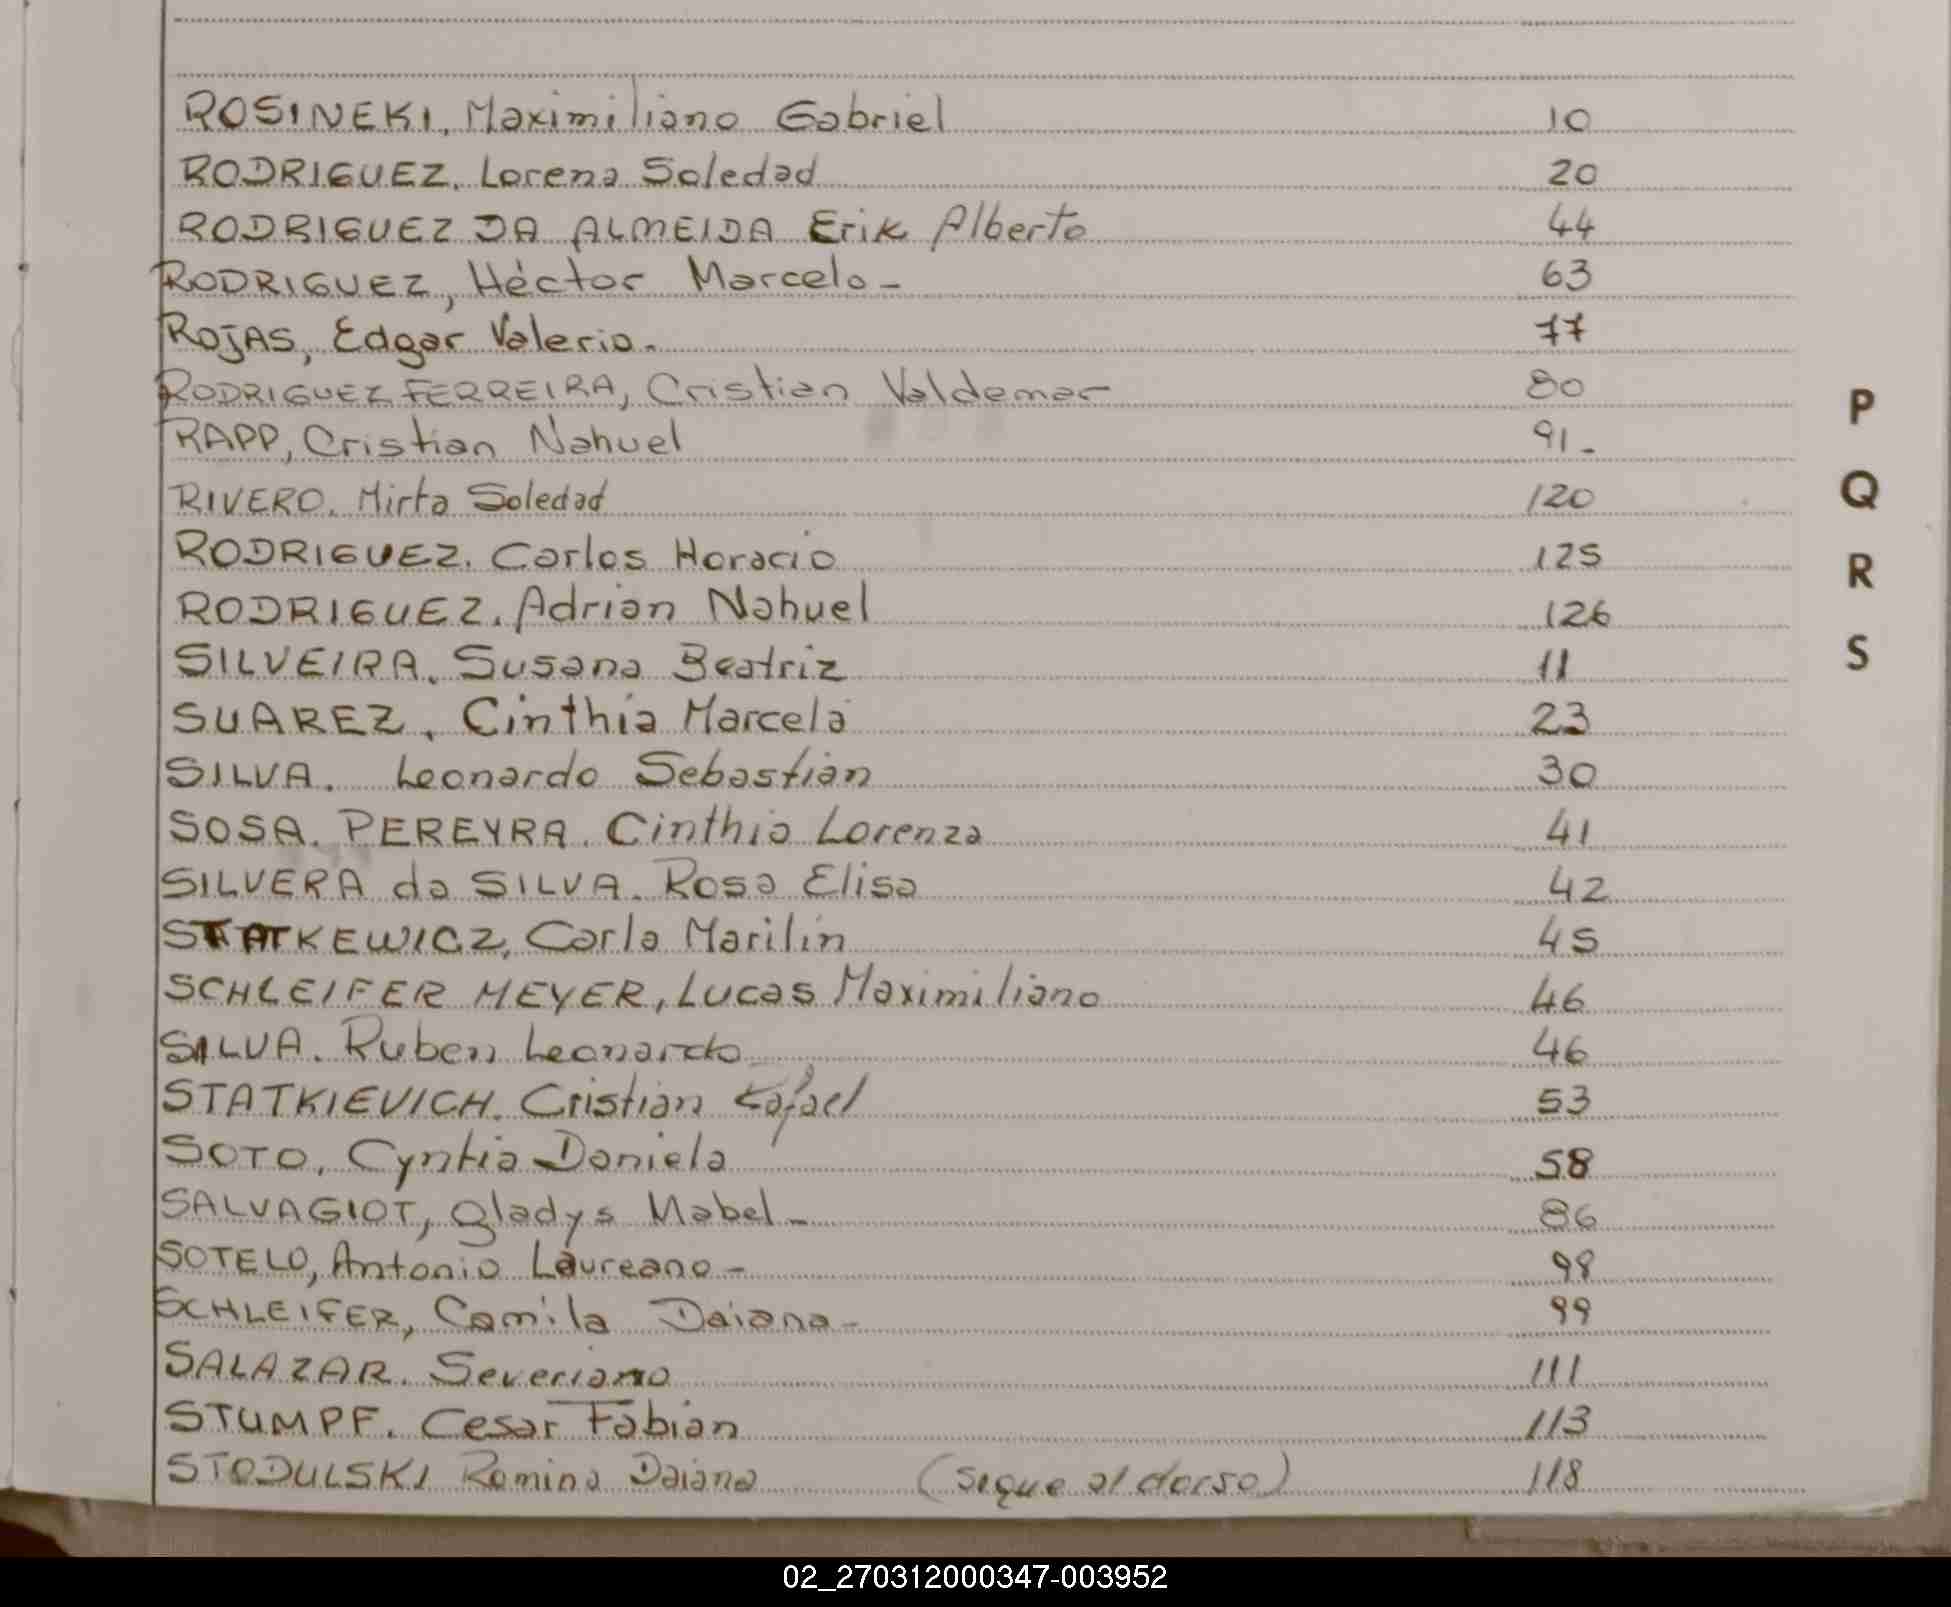 ROSINEKI, Maximiliano Gabriel 10
RODRIGUEZ. Lorena Soledad 20
RODRIGUEZ DA ALMEIDA Erik Alberto 44
RODRIGUEZ, Héctor Marcelo- 63
ROJAS, Edgar Valerio. 77
RODRIGUEZ FERREIRA, Cristian Valdemar 80
RAPP, Cristian Nahuel 91-
RIVERO. Mirta Soledad 120
RODRIGUEZ. Carlos Horacio 125
RODRIGUEZ. Adrian Nahuel 126
SILVEIRA. Susana Beatriz 11
SUAREZ. Cinthia Marcela 23
SILVA. Leonardo Sebastian 30
SOSA. PEREYRA. Cinthia Lorenza 41
SILVERA da SILVA. Rosa Elisa 42
STATKEWICZ, Carla Marilin 45
SCHLEIFER MEYER, Lucas Maximiliano 46
SILVA. Ruben Leonardo 46
STATKIEVICH. Cristian Rafael 53
SOTO, Cyntia Daniela 58
SALVAGIOT, Gladys Mabel- 86
SOTELO, Antonio Laureano- 98
SCHLEIFER, Camila Daiana- 99
SALAZAR. Severiano 111
STUMPF. Cesar Fabian 113
STODULSKI Romina Daiana (sigue al dorso) 118
P
Q
R
S
02_270312000347-003952